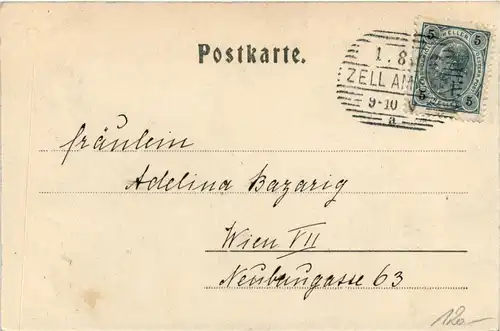 Postkarte.
1.8
ZELL AM
9-10
a
5 HELLER 5
5 5
fräulein
Adelina Bazarig
Wien VII
Neubaugasse 63
120.-